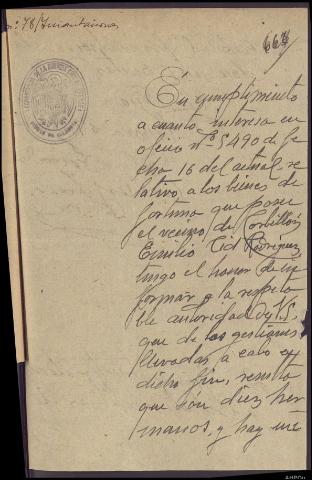 nº 78/Incautaciones
667
En cumplimiento
a cuanto interesa en
oficio nº 5490 de fe
cha 16 del actual re
lativo a los bienes de
fortuna que posee
el vecino de Corbillón
Emilio Cid Rodriguez,
tengo el honor de in
formar a la respeta
ble autoridad de V.S.
que de las gestiones
llevadas a cavo en
dicho fin, resulta
que son diez her
manos, y hay uno